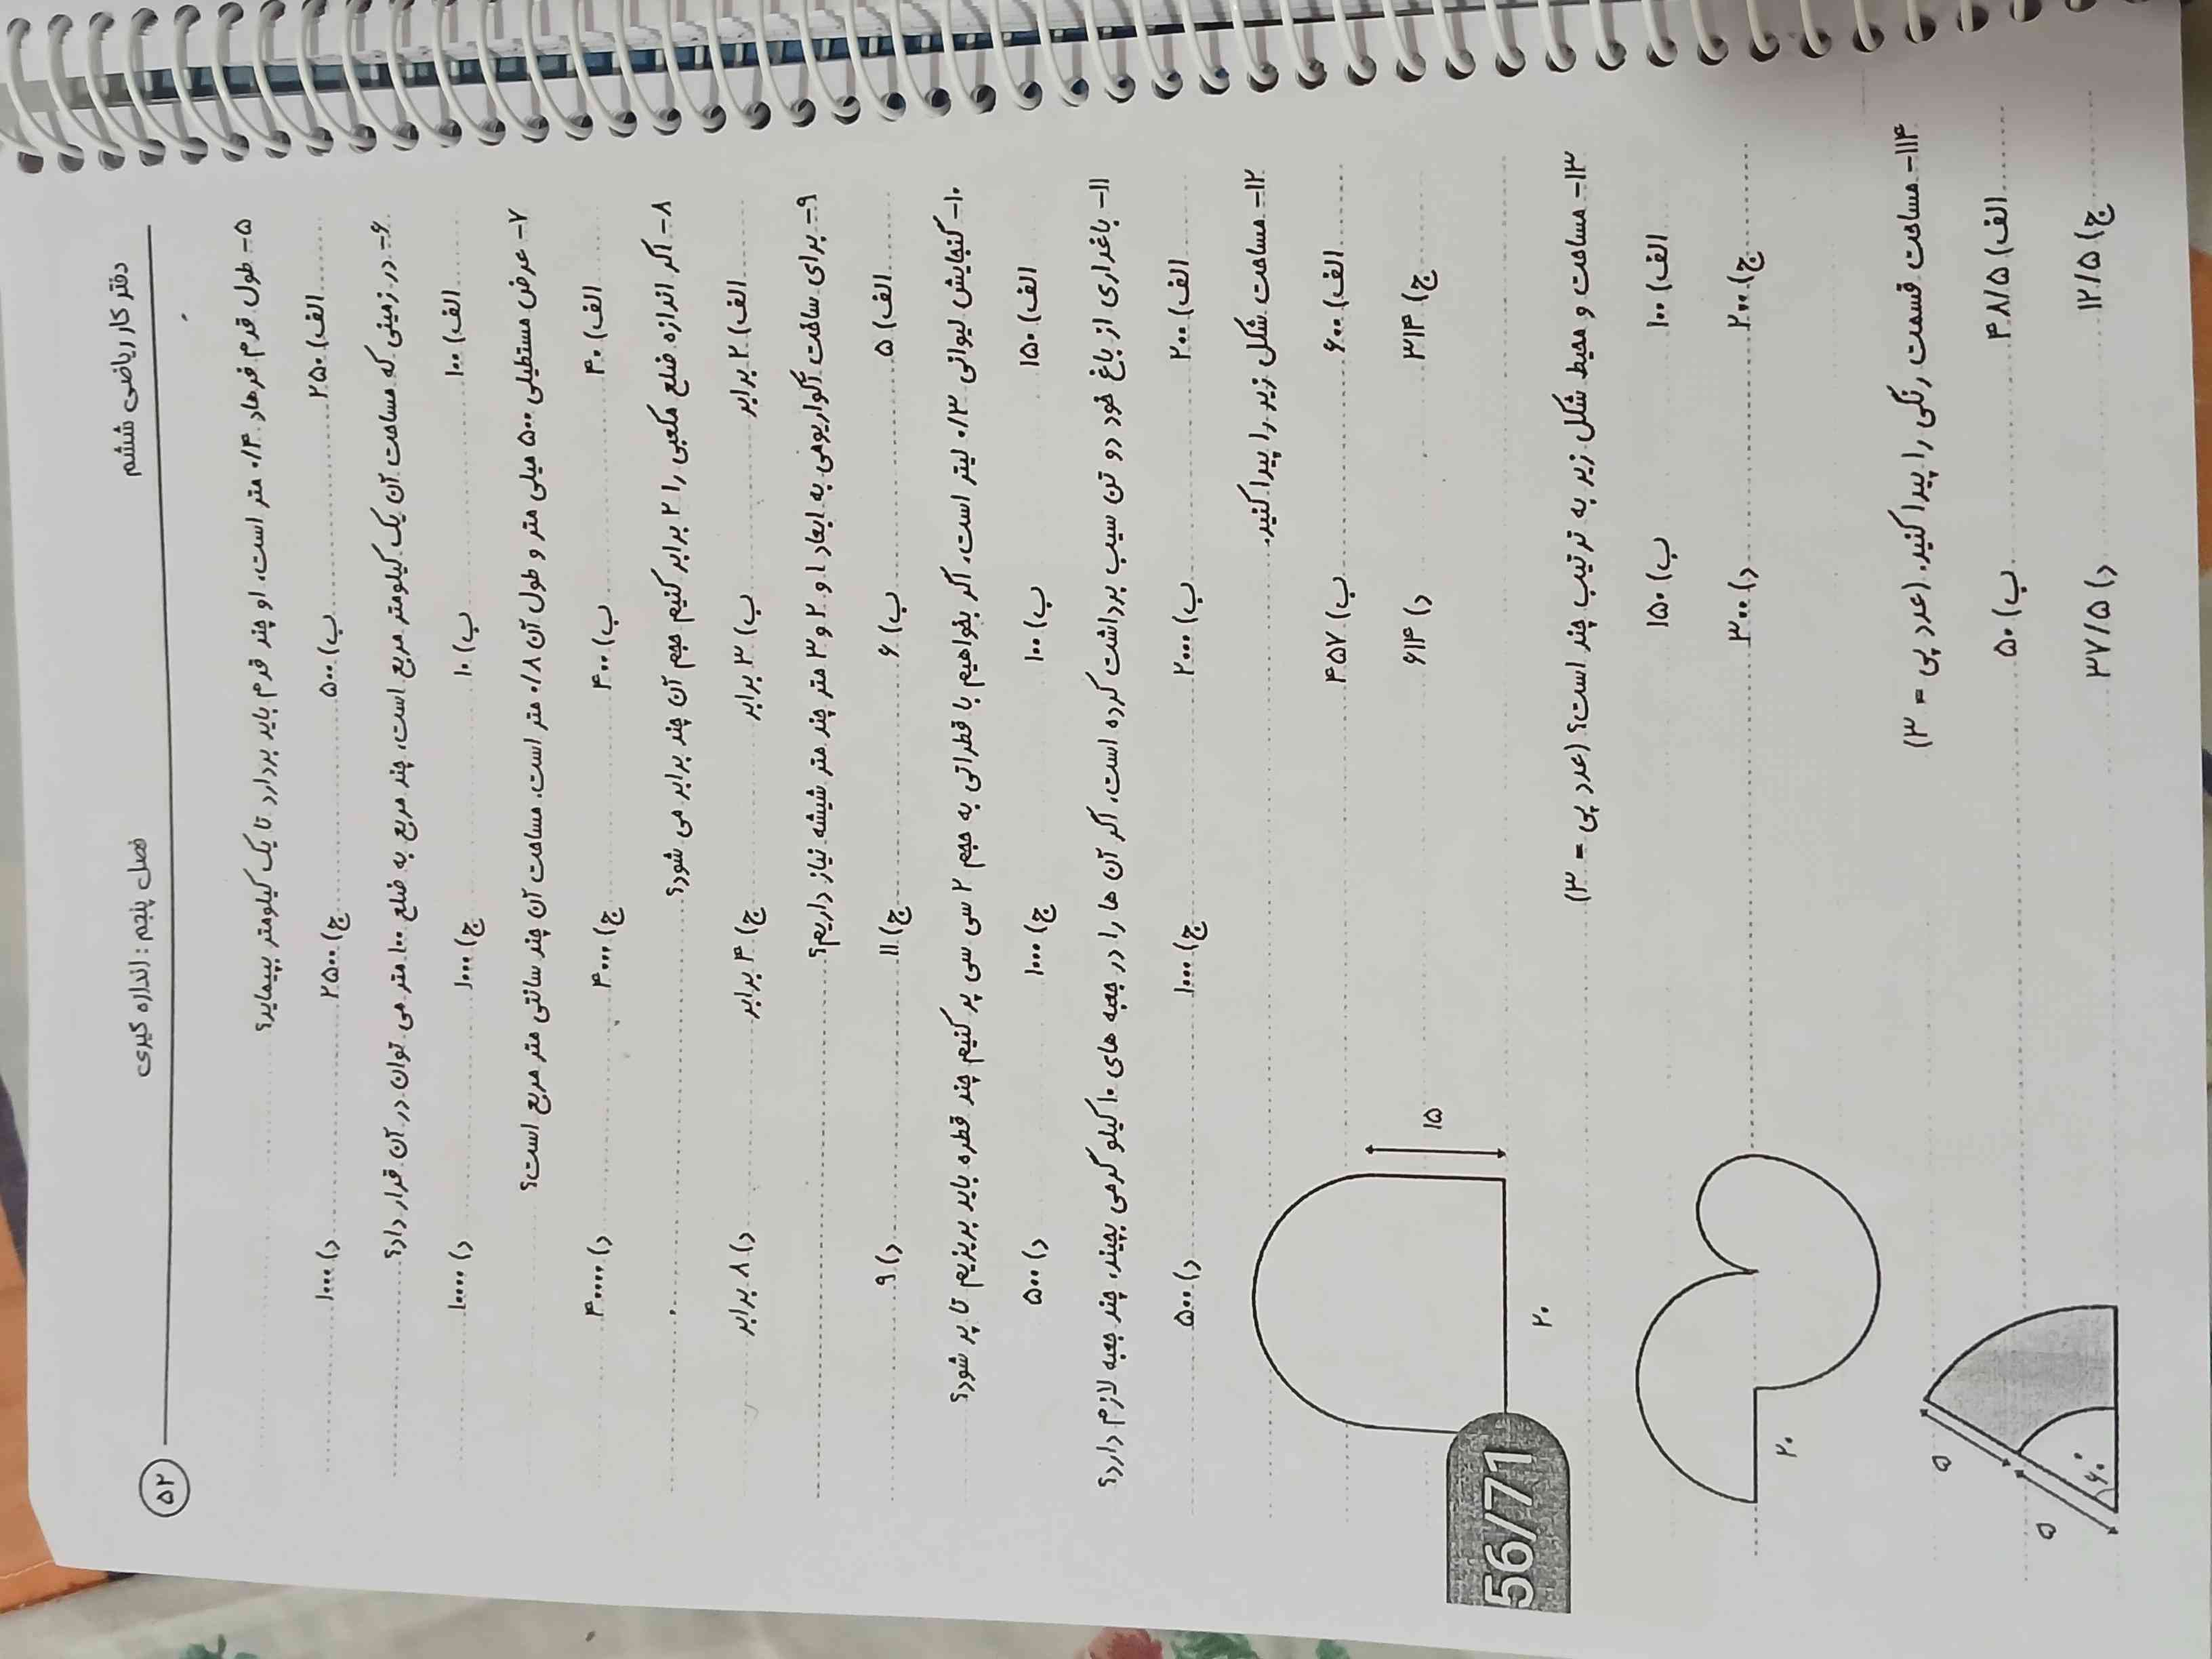 دفتر کار ریاضی ششم
فصل پنجم : اندازه گیری
۵۲
۵- طول قدم فرهاد ۰/۴ متر است، او چند قدم باید بردارد تا یک کیلومتر بپیماید؟
الف) ۲۵۰ ب) ۵۰۰ ج) ۲۵۰۰ د) ۱۰۰۰
۶- در زمینی که مساحت آن یک کیلومتر مربع است، چند مربع به ضلع ۱۰۰ متر می توان در آن قرار داد؟
الف) ۱۰۰ ب) ۱۰ ج) ۱۰۰۰ د) ۱۰۰۰۰
۷- عرض مستطیلی ۵۰۰ میلی متر و طول آن ۰/۸ متر است. مساحت آن چند سانتی متر مربع است؟
الف) ۴۰ ب) ۴۰۰ ج) ۴۰۰۰ د) ۴۰۰۰۰
۸- اگر اندازه ضلع مکعبی را ۲ برابر کنیم حجم آن چند برابر می شود؟
الف) ۲ برابر ب) ۳ برابر ج) ۴ برابر د) ۸ برابر
۹- برای ساخت آکواریومی به ابعاد ۱ و ۲ و ۳ متر چند متر شیشه نیاز داریم؟
الف) ۵ ب) ۶ ج) ۱۱ د) ۹
۱۰- گنجایش لیوانی ۰/۳ لیتر است، اگر بخواهیم با قطراتی به حجم ۲ سی سی پر کنیم چند قطره باید بریزیم تا پر شود؟
الف) ۱۵۰ ب) ۱۰۰ ج) ۱۰۰۰ د) ۵۰۰
۱۱- باغداری از باغ خود دو تن سیب برداشت کرده است، اگر آن ها را در جعبه های ۱۰ کیلو گرمی بچیند، چند جعبه لازم دارد؟
الف) ۲۰۰ ب) ۲۰۰۰ ج) ۱۰۰۰ د) ۵۰۰
۱۲- مساحت شکل زیر را پیدا کنید.
الف) ۶۰۰ ب) ۴۵۷
ج) ۳۱۴ د) ۶۱۴
۱۵
۲۰
۱۳- مساحت و محیط شکل زیر به ترتیب چند است؟ (عدد پی = ۳)
الف) ۱۰۰ ب) ۱۵۰
ج) ۲۰۰ د) ۳۰۰
۲۰
56/71
۱۱۴- مساحت قسمت رنگی را پیدا کنید. (عدد پی = ۳)
الف) ۴۸/۵ ب) ۵۰
ج) ۱۲/۵ د) ۳۷/۵
۵
۵
۶۰°